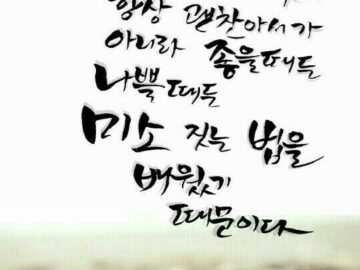 항상 괜찮아서가
아니라 좋을때든
나쁠때든
미소 짓는 법을
배웠기
때문이다